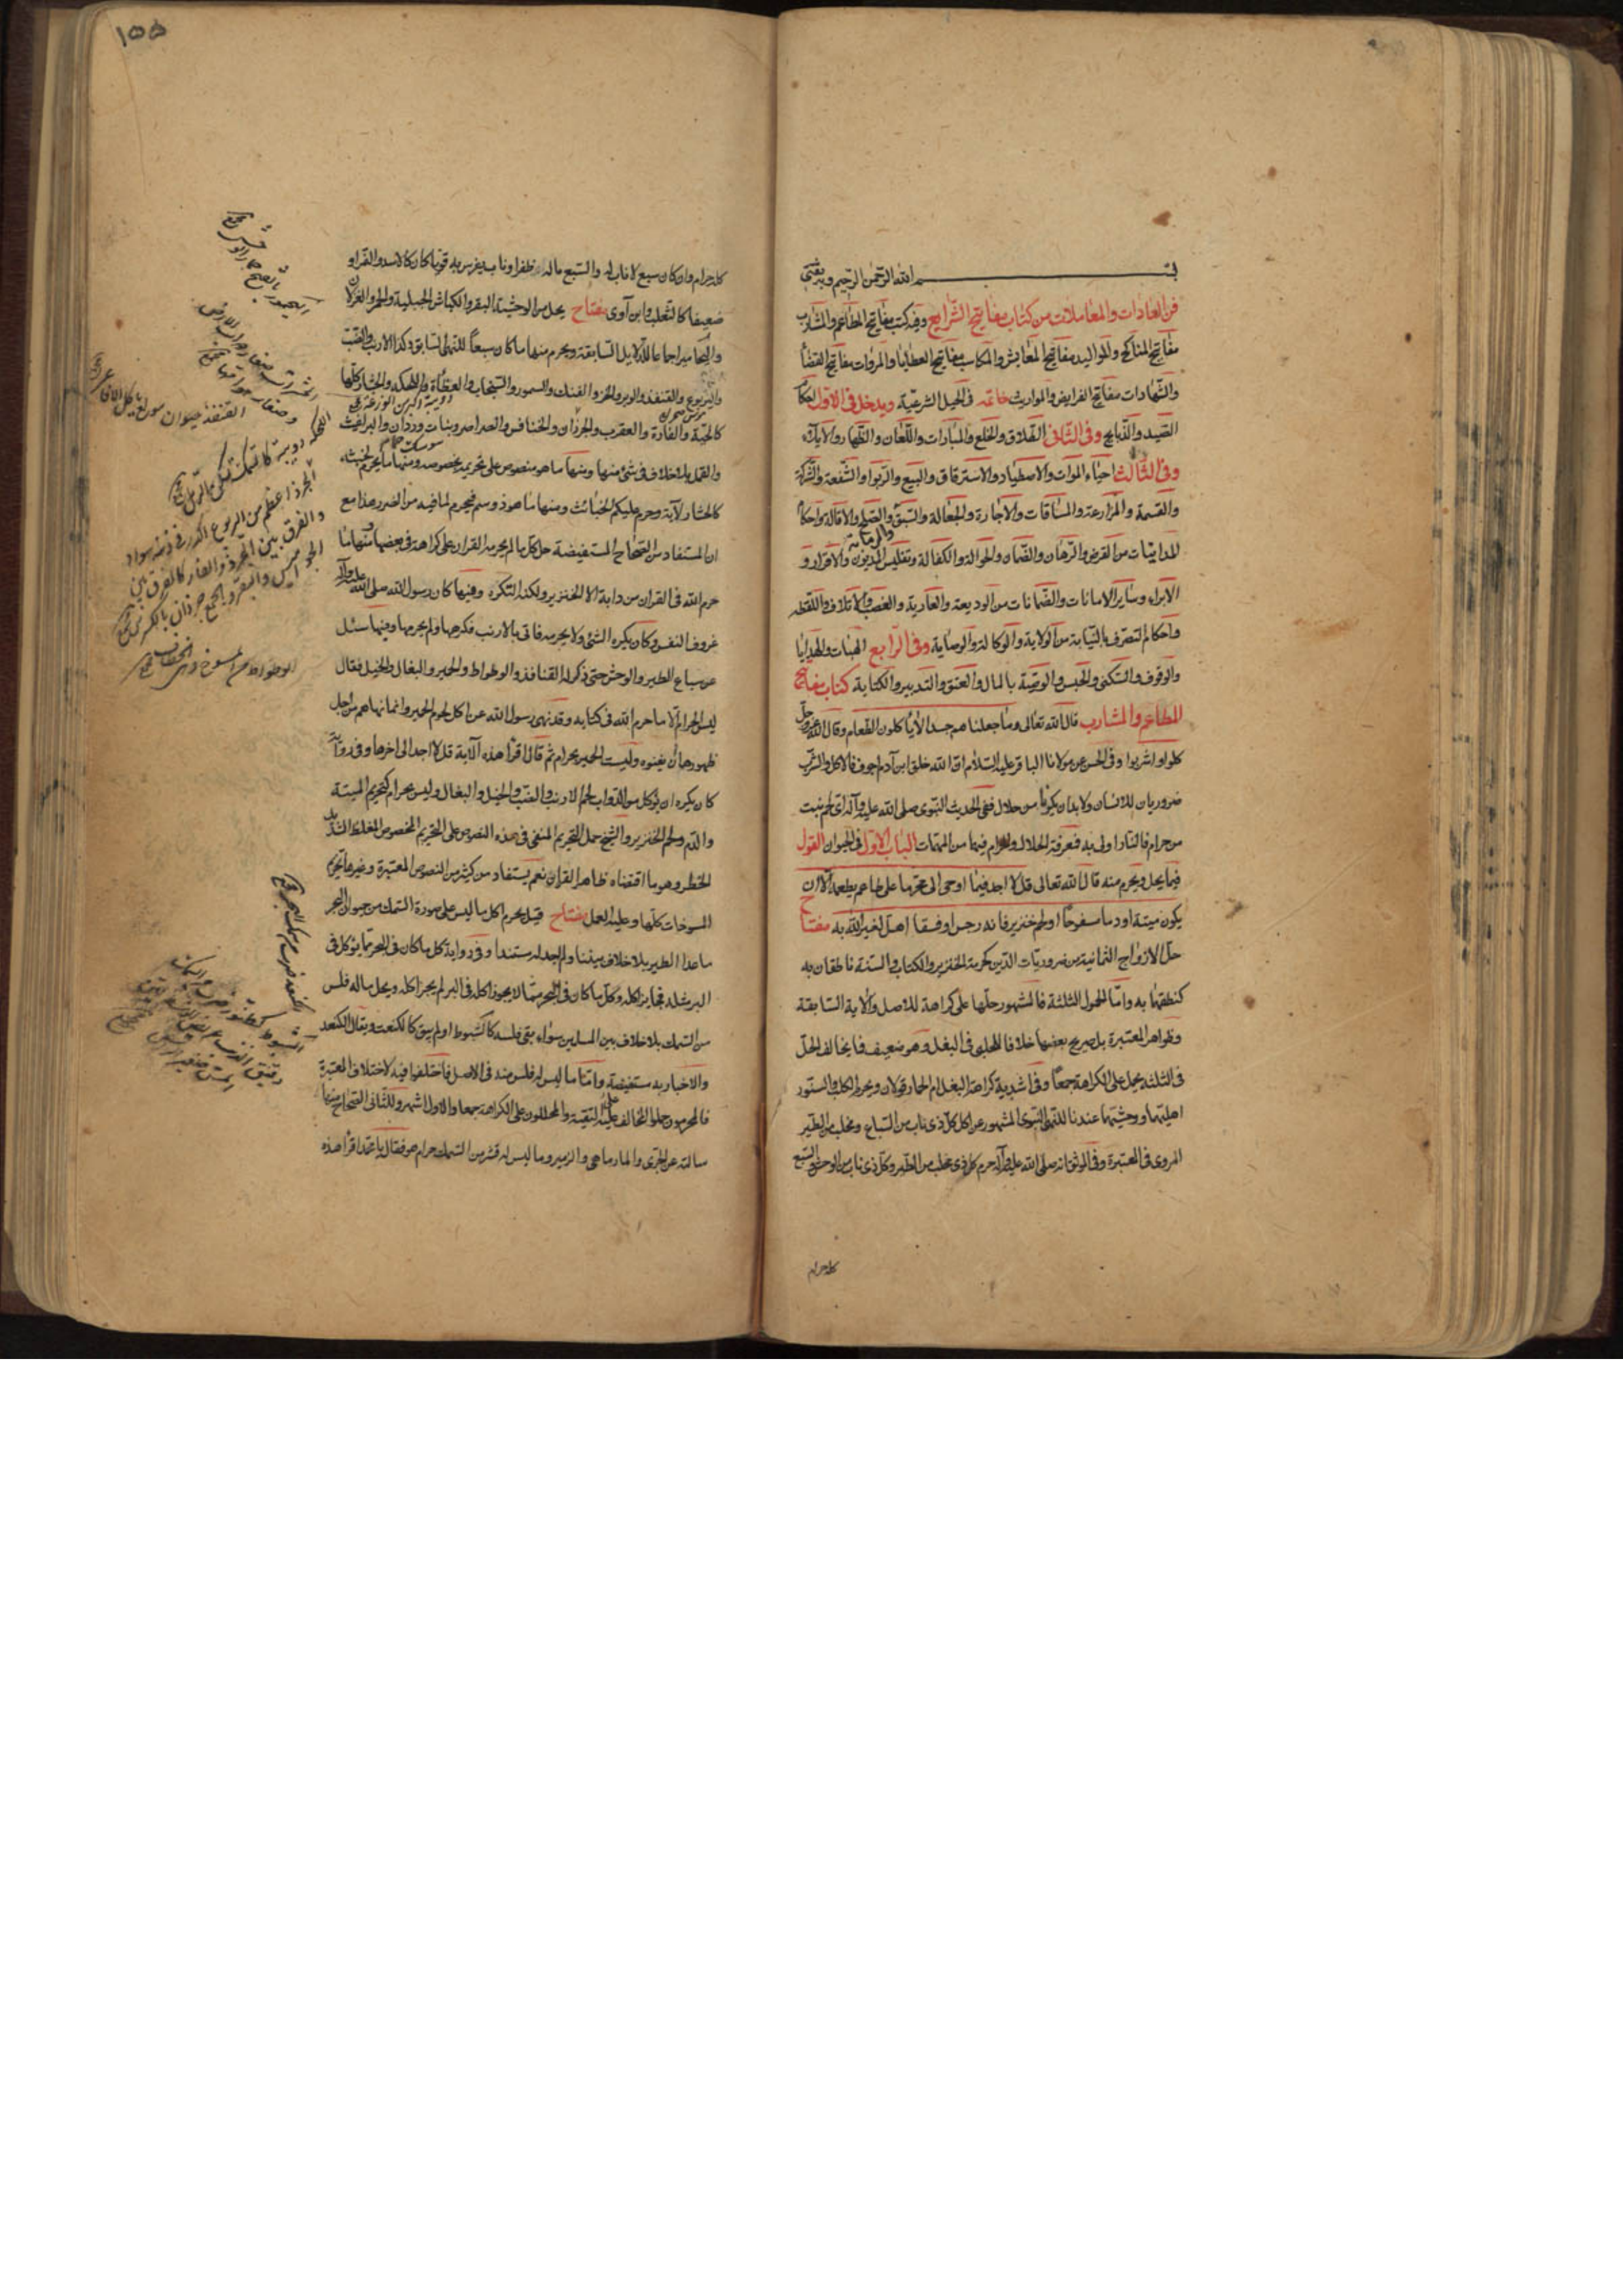 بسم الله الرحمن الرحيم وبه ثقتي
فن العادات والمعاملات من كتاب مفاتيح الشرايع وفيه كتب مفاتيح المطاعم والمشارب
مفاتيح المناكح والمواليد مفاتيح المعايش والمكاسب مفاتيح العطايا والمروات مفاتيح القضا
والشهادات مفاتيح الفرايض والمواريث خاتمة في الحيل الشرعية ويدخل في الاول احكام
الصيد والذبايح وفي الثاني الطلاق والخلع والمبارات واللعان والظهار والايلاء
وفي الثالث احياء الموات والاصطياد والاسترقاق والبيع والربوا والشفعة والشركة
والقسمة والمزارعة والمساقات والاجارة والجعالة والسبق والرماية والصلح والاقالة واحكام
المداينات من القرض والرهان والضمان والحوالة والكفالة وتفليس المديون والاقرار و
الابراء وساير الامانات والضمانات من الوديعة والعارية والغصب والاتلاف واللقطة
واحكام التصرف بالنيابة من الولاية والوكالة والوصاية وفي الرابع الهبات والهدايا
والوقوف والسكنى والحبس والوصية بالمال والعتق والتدبير والكتابة كتاب مفاتيح
المطاعم والمشارب قال الله تعالى وما جعلناهم جسدا لا ياكلون الطعام وقال الله عز وجل
كلوا واشربوا وفي الحسن عن مولانا الباقر عليه السلام ان الله خلق ابن آدم اجوف فالاكل والشرب
ضروريان للانسان ولابد ان يكونا من حلال ففي الحديث النبوي صلى الله عليه وآله اي لحم نبت
من حرام فالنار اولى به فمعرفة الحلال والحرام فيهما من المهمات الباب الاول في الحيوان القول
فيما يحل ويحرم منه قال الله تعالى قل لا اجد فيما اوحى الى محرما على طاعم يطعمه الا ان
يكون ميتة او دما مسفوحا او لحم خنزير فانه رجس او فسقا اهل لغير الله به مفتاح
حل الازواج الثمانية من ضروريات الدين كحرمة الخنزير والكتاب والسنة ناطقان به
كنطقهما به واما الحمول الثلثة فالمشهور حلها على كراهة للاصل والاية السابقة
وظواهر المعتبرة بل صريح بعضها خلافا للحلبي في البغل وهو ضعيف فما يخالف الحل
في الثلثة يحمل على الكراهة جمعا وفي اشدية كراهة البغل ام الحمار قولان ويحرم الكلب والسنور
اهليتهما ووحشيتهما عندنا للنهي النبوي المشهور عن اكل كل ذي ناب من السباع ومخلب من الطير
المروي في المعتبرة وفي الموثق انه صلى الله عليه وآله حرم كل ذي مخلب من الطير وكل ذي ناب من الوحش والسبع
كله حرام
١٥٥
كله حرام وان كان سبع لا ناب له والسبع ما له ظفر او ناب يفرس به قويا كان كالاسد والنمر او
ضعيفا كالثعلب وابن آوى مفتاح يحل من الوحشية البقر والكباش الجبلية والحمر والغزلان
واليحامير اجماعا للدلايل السابقة ويحرم منها ما كان سبعا للنهي السابق وكذا الارنب والضب
واليربوع والقنفذ والوبر والخز والفنك والسمور والسنجاب والعظاة واللحكه والحشار كلها
كالحية والفارة والعقرب والجرذان والخنافس والصراصر وبنات وردان والبراغيث
والقمل بلا خلاف في شئ منها ومنها ما هو منصوص على تحريمه بخصوصه ومنها ما يحرم لخبثه
كالحشار لآية وحرم عليكم الخبائث ومنها ما هو ذو سم فيحرم لما فيه من الضرر هذا مع
ان المستفاد من الصحاح المستفيضة حل كل ما لم يحرمه القرآن على كراهة في بعضها منها ما
حرم الله في القرآن من دابة الا الخنزير ولكنه النكرة وفيها كان رسول الله صلى الله عليه وآله
عزوف النفس وكان يكره الشئ ولا يحرمه فاتى بالارنب فكرهها ولم يحرمها ومنها سئل
عن سباع الطير والوحش حتى ذكر له القنافذ والوطواط والحمير والبغال والخيل فقال
ليس الحرام الا ما حرم الله في كتابه وقد نهى رسول الله عن اكل لحوم الحمير وانما نهاهم من اجل
ظهورها ان يفنوه وليست الحمير بحرام ثم قال اقرأ هذه الآية قل لا اجد الى اخرها وفي رواية
كان يكره ان يؤكل من الدواب لحم الارنب والضب والخيل والبغال وليس بحرام كتحريم الميتة
والدم ولحم الخنزير والشيخ حمل التحريم المنفي في هذه النصوص على التحريم المخصوص المغلظ الشديد
الخطر وهو ما اقتضاه ظاهر القرآن نعم يستفاد من كثير من النصوص المعتبرة وغيرها تحريم
المسوخات كلها وعليه العمل مفتاح قيل يحرم اكل ما ليس على صورة السمك من حيوان البحر
ما عدا الطير بلا خلاف بيننا ولم اجد له مستندا وفي رواية كل ما كان في البحر مما يؤكل في
البر مثله فجايز اكله وكل ما كان في البحر مما لا يجوز اكله في البر لم يجز اكله ويحل ما له فلس
من السمك بلا خلاف بين المسلمين سواء بقى فلسه كالشبوط او لم يبق كالكنعت ويقال الكنعد
والاخبار به مستفيضة واما ما ليس له فلس منه في الاصل فاختلفوا فيه لاختلاف المعتبرة
فالمحرمون حملوا المخالف على التقية والمحللون على الكراهة جمعا والاول اشهر وللثاني الصحاح منها
سالته عن الجري والمارماهي والزمير وما ليس له قشر من السمك حرام هو فقال يا محمد اقرأ هذه